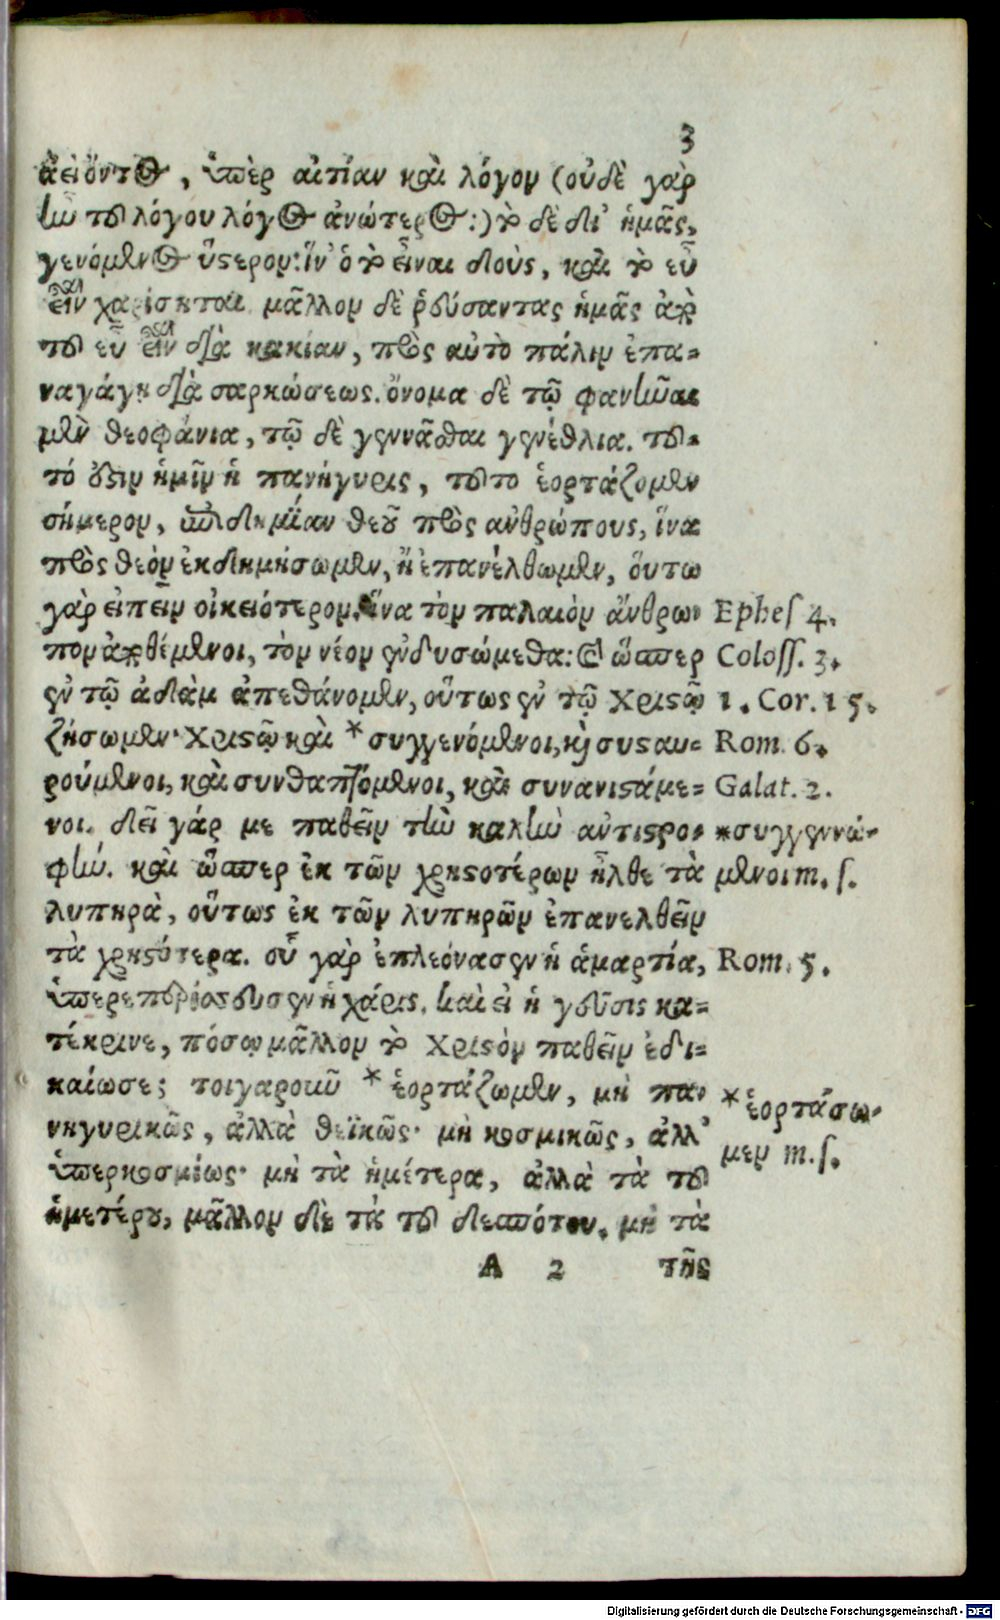 3
ἀεὶ ὄντος, ὑπὲρ αἰτίαν καὶ λόγον (οὐδὲ γὰρ
ἦν τοῦ λόγου λόγος ἀνώτερος:) τὸ δὲ δι’ ἡμᾶς,
γενόμενος ὕστερον: ἵν’ ὁ τὸ εἶναι δοὺς, καὶ τὸ εὖ
εἶναι χαρίσηται μᾶλλον δὲ ῥεύσαντας ἡμᾶς ἀπὸ
τοῦ εὖ εἶναι διὰ κακίαν, πρὸς αὐτὸ πάλιν ἐπα-
ναγάγῃ διὰ σαρκώσεως. ὄνομα δὲ τῷ φανῆναι
μὲν θεοφάνια, τῷ δὲ γεννᾶσθαι γενέθλια. τοῦ-
τό ἐστιν ἡμῖν ἡ πανήγυρις, τοῦτο ἑορτάζομεν
σήμερον, ἐπιδημίαν θεοῦ πρὸς ἀνθρώπους, ἵνα
πρὸς θεὸν ἐκδημήσωμεν, ἢ ἐπανέλθωμεν, οὕτω
γὰρ εἰπεῖν οἰκειότερον. ἵνα τὸν παλαιὸν ἄνθρω- Ephes 4.
πον ἀποθέμενοι, τὸν νέον ἐνδυσώμεθα: καὶ ὥσπερ Coloss. 3.
ἐν τῷ ἀδὰμ ἀπεθάνομεν, οὕτως ἐν τῷ Χριστῷ 1. Cor. 15.
ζήσωμεν· Χριστῷ καὶ * συγγενόμενοι, καὶ συσταυ- Rom. 6.
ρούμενοι, καὶ συνθαπτόμενοι, καὶ συνανιστάμε- Galat. 2.
νοι. δεῖ γάρ με παθεῖν τὴν καλὴν ἀντιστρο- *συγγεννώ-
φήν. καὶ ὥσπερ ἐκ τῶν χρηστοτέρων ἦλθε τὰ μενοι m. s.
λυπηρὰ, οὕτως ἐκ τῶν λυπηρῶν ἐπανελθεῖν
τὰ χρηστότερα. οὗ γὰρ ἐπλεόνασεν ἡ ἁμαρτία, Rom. 5.
ὑπερεπερίσσευσεν ἡ χάρις. καὶ εἰ ἡ γεῦσις κα-
τέκρινε, πόσῳ μᾶλλον τὸ Χριστὸν παθεῖν ἐδι-
καίωσε; τοιγαροῦν * ἑορτάζωμεν, μὴ πα- * ἑορτάσω-
νηγυρικῶς, ἀλλὰ θεϊκῶς· μὴ κοσμικῶς, ἀλλ’ μεν m. s.
ὑπερκοσμίως· μὴ τὰ ἡμέτερα, ἀλλὰ τὰ τοῦ
ἡμετέρου, μᾶλλον δὲ τὰ τοῦ δεσπότου. μὴ τὰ
A 2 τῆς
Digitalisierung gefördert durch die Deutsche Forschungsgemeinschaft - DFG